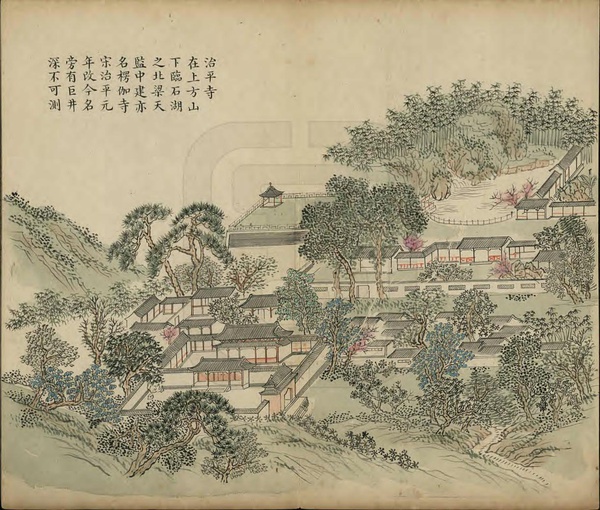 治平寺
在上方山
下臨石湖
之北梁天
監中建亦
名楞伽寺
宋治平元
年改今名
旁有巨井
深不可測